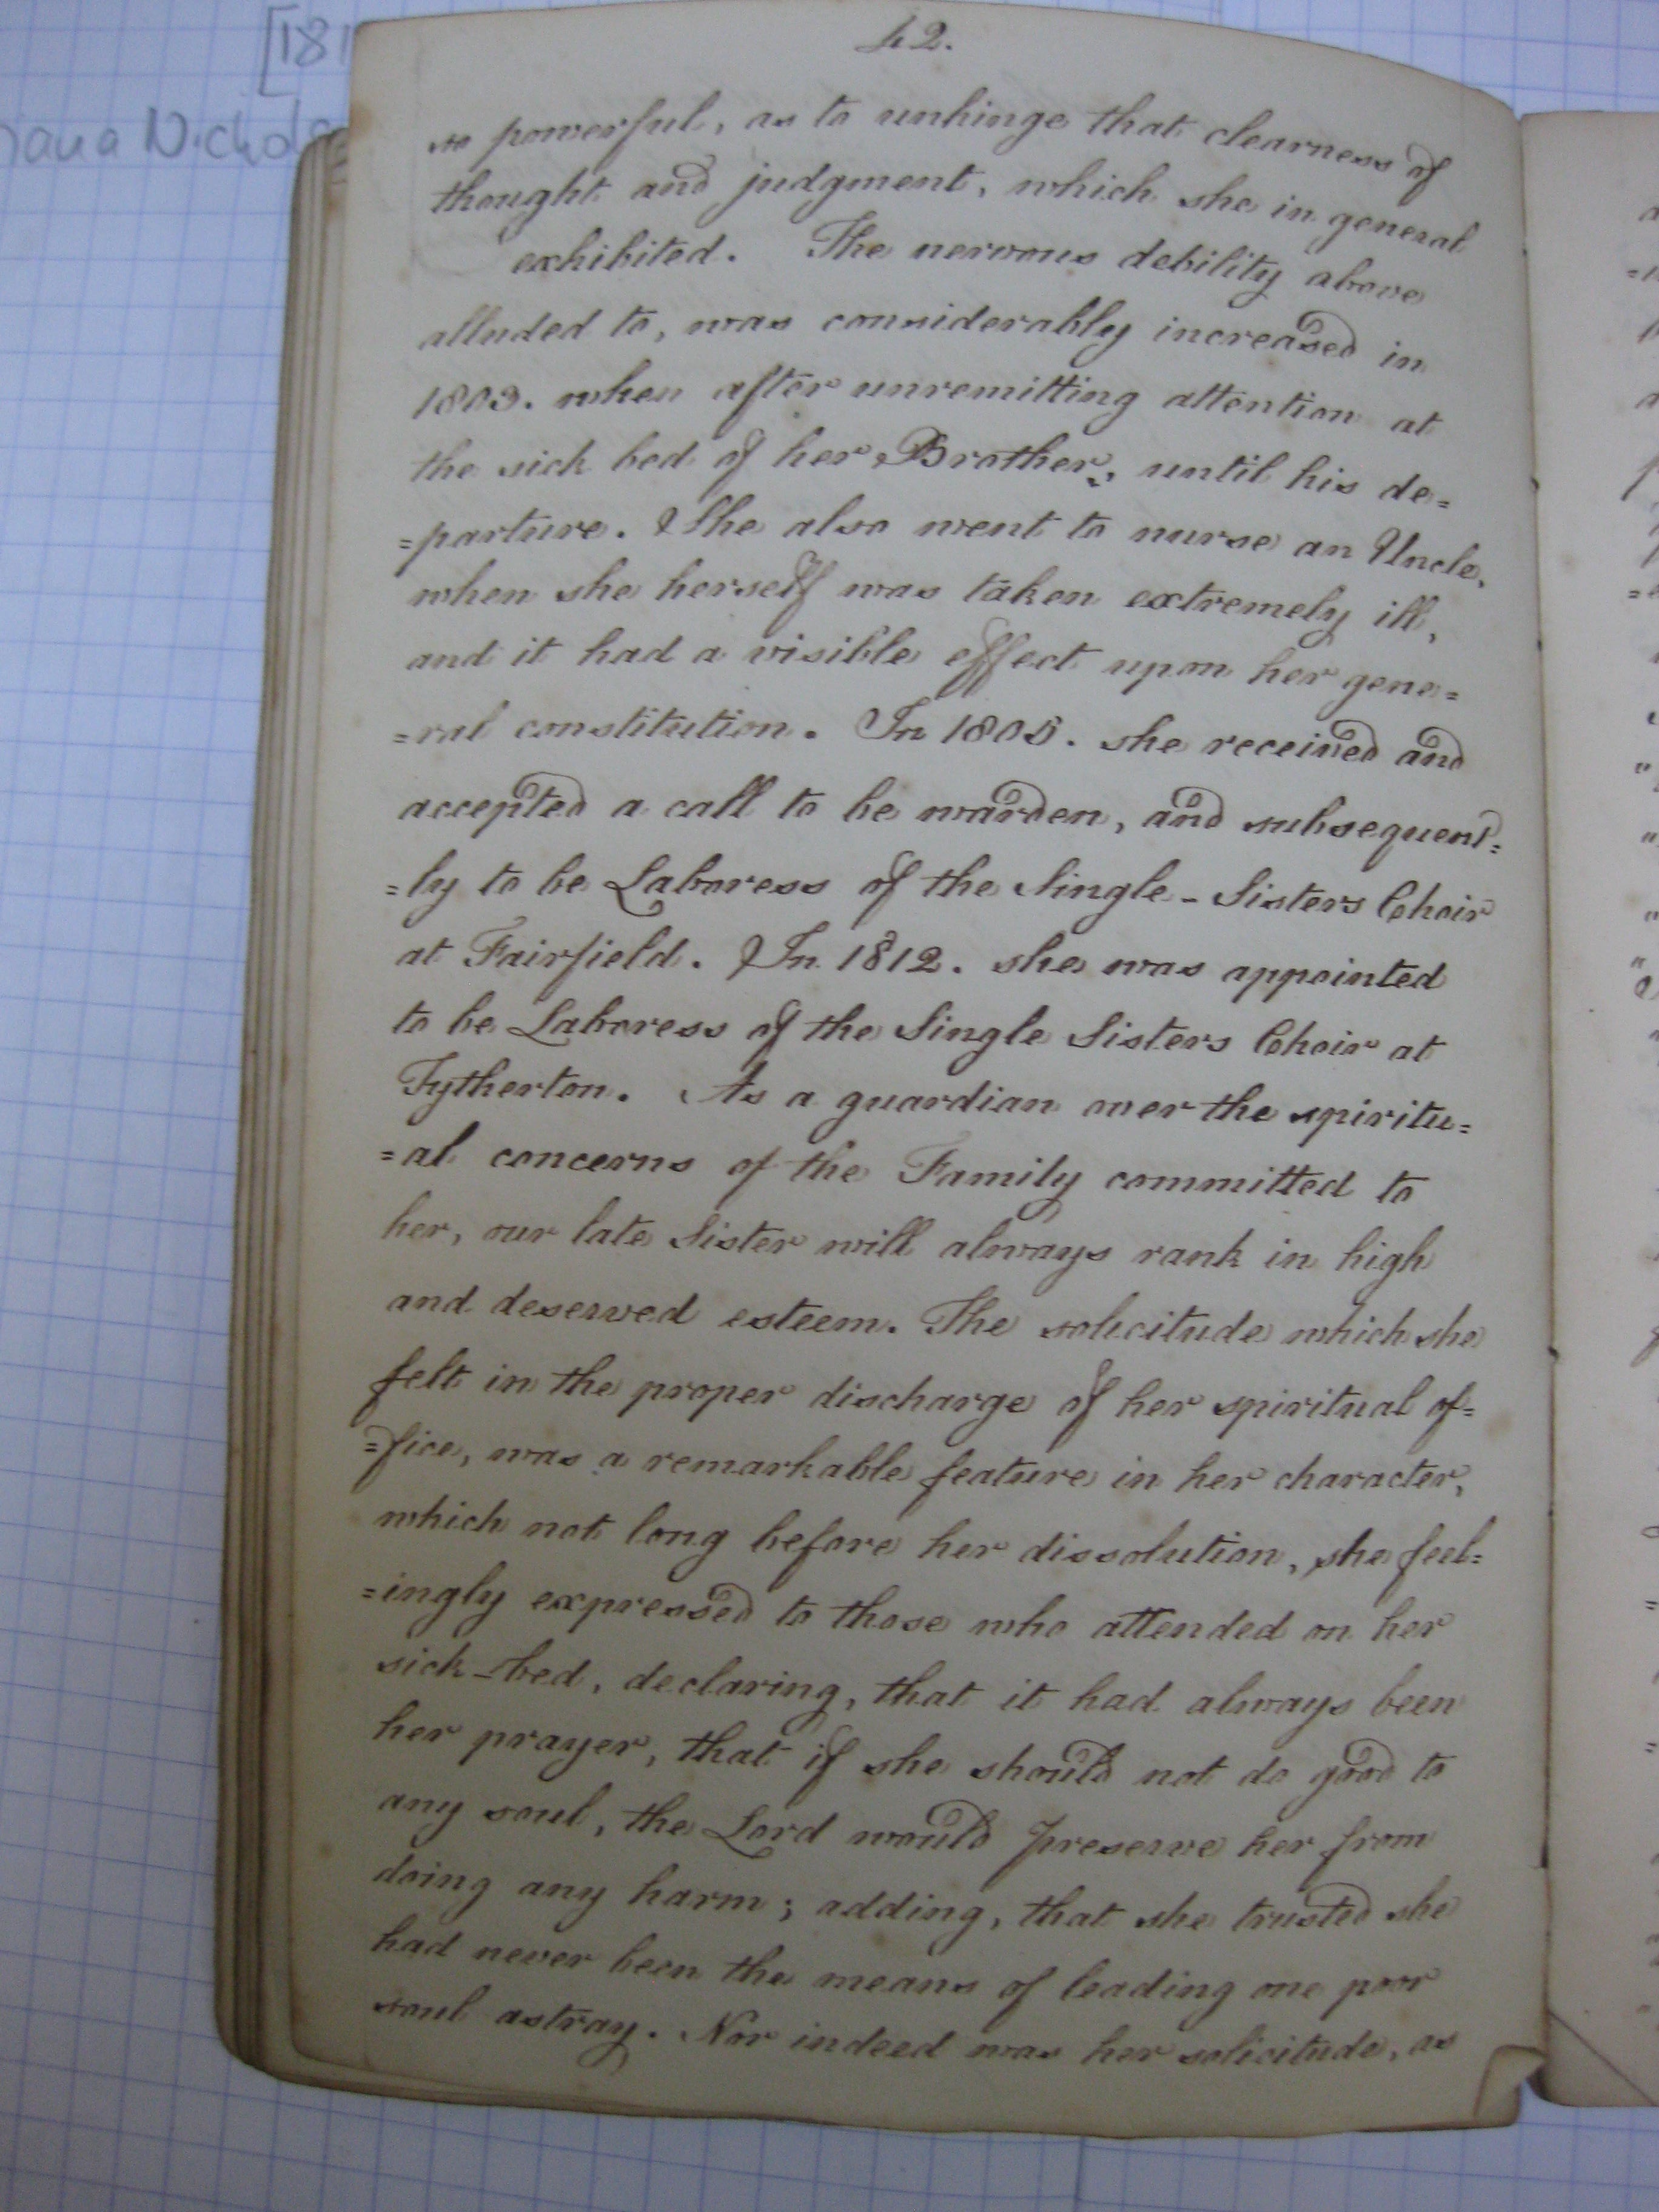 [181
iana Nichol
42.
so powerful, as to unhinge that clearness of
thought and judgment, which she in general
exhibited. The nervous debility above
alluded to, was considerably increased in
1803. when after unremitting attention at
the sick bed of her Brother, until his de=
=parture. She also went to nurse an Uncle,
when she herself was taken extremely ill,
and it had a visible effect upon her gene=
=ral constitution. In 1805. she received and
accepted a call to be warden, and subsequent=
=ly to be Laboress of the Single-Sisters Choir
at Fairfield. In 1812. she was appointed
to be Laboress of the Single Sisters Choir at
Tytherton. As a guardian over the spiritu=
=al concerns of the Family committed to
her, our late Sister will always rank in high
and deserved esteem. The solicitude which she
felt in the proper discharge of her spiritual of=
=fice, was a remarkable feature in her character,
which not long before her dissolution, she feel=
=ingly expressed to those who attended on her
sick-bed, declaring, that it had always been
her prayer, that if she should not do good to
any soul, the Lord would preserve her from
doing any harm; adding, that she trusted she
had never been the means of leading one poor
soul astray. Nor indeed was her solicitude, as